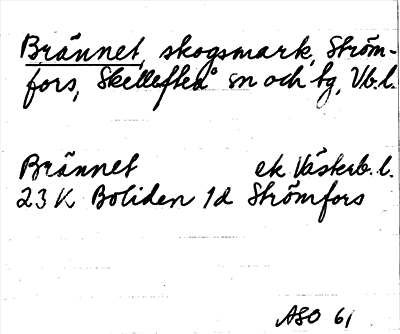 Brännet, skogsmark, Ström-
fors, Skellefteå sn och tg, Vb. l.
Brännet ek Västerb. l.
23 K Boliden 1d Strömfors
ASO 61